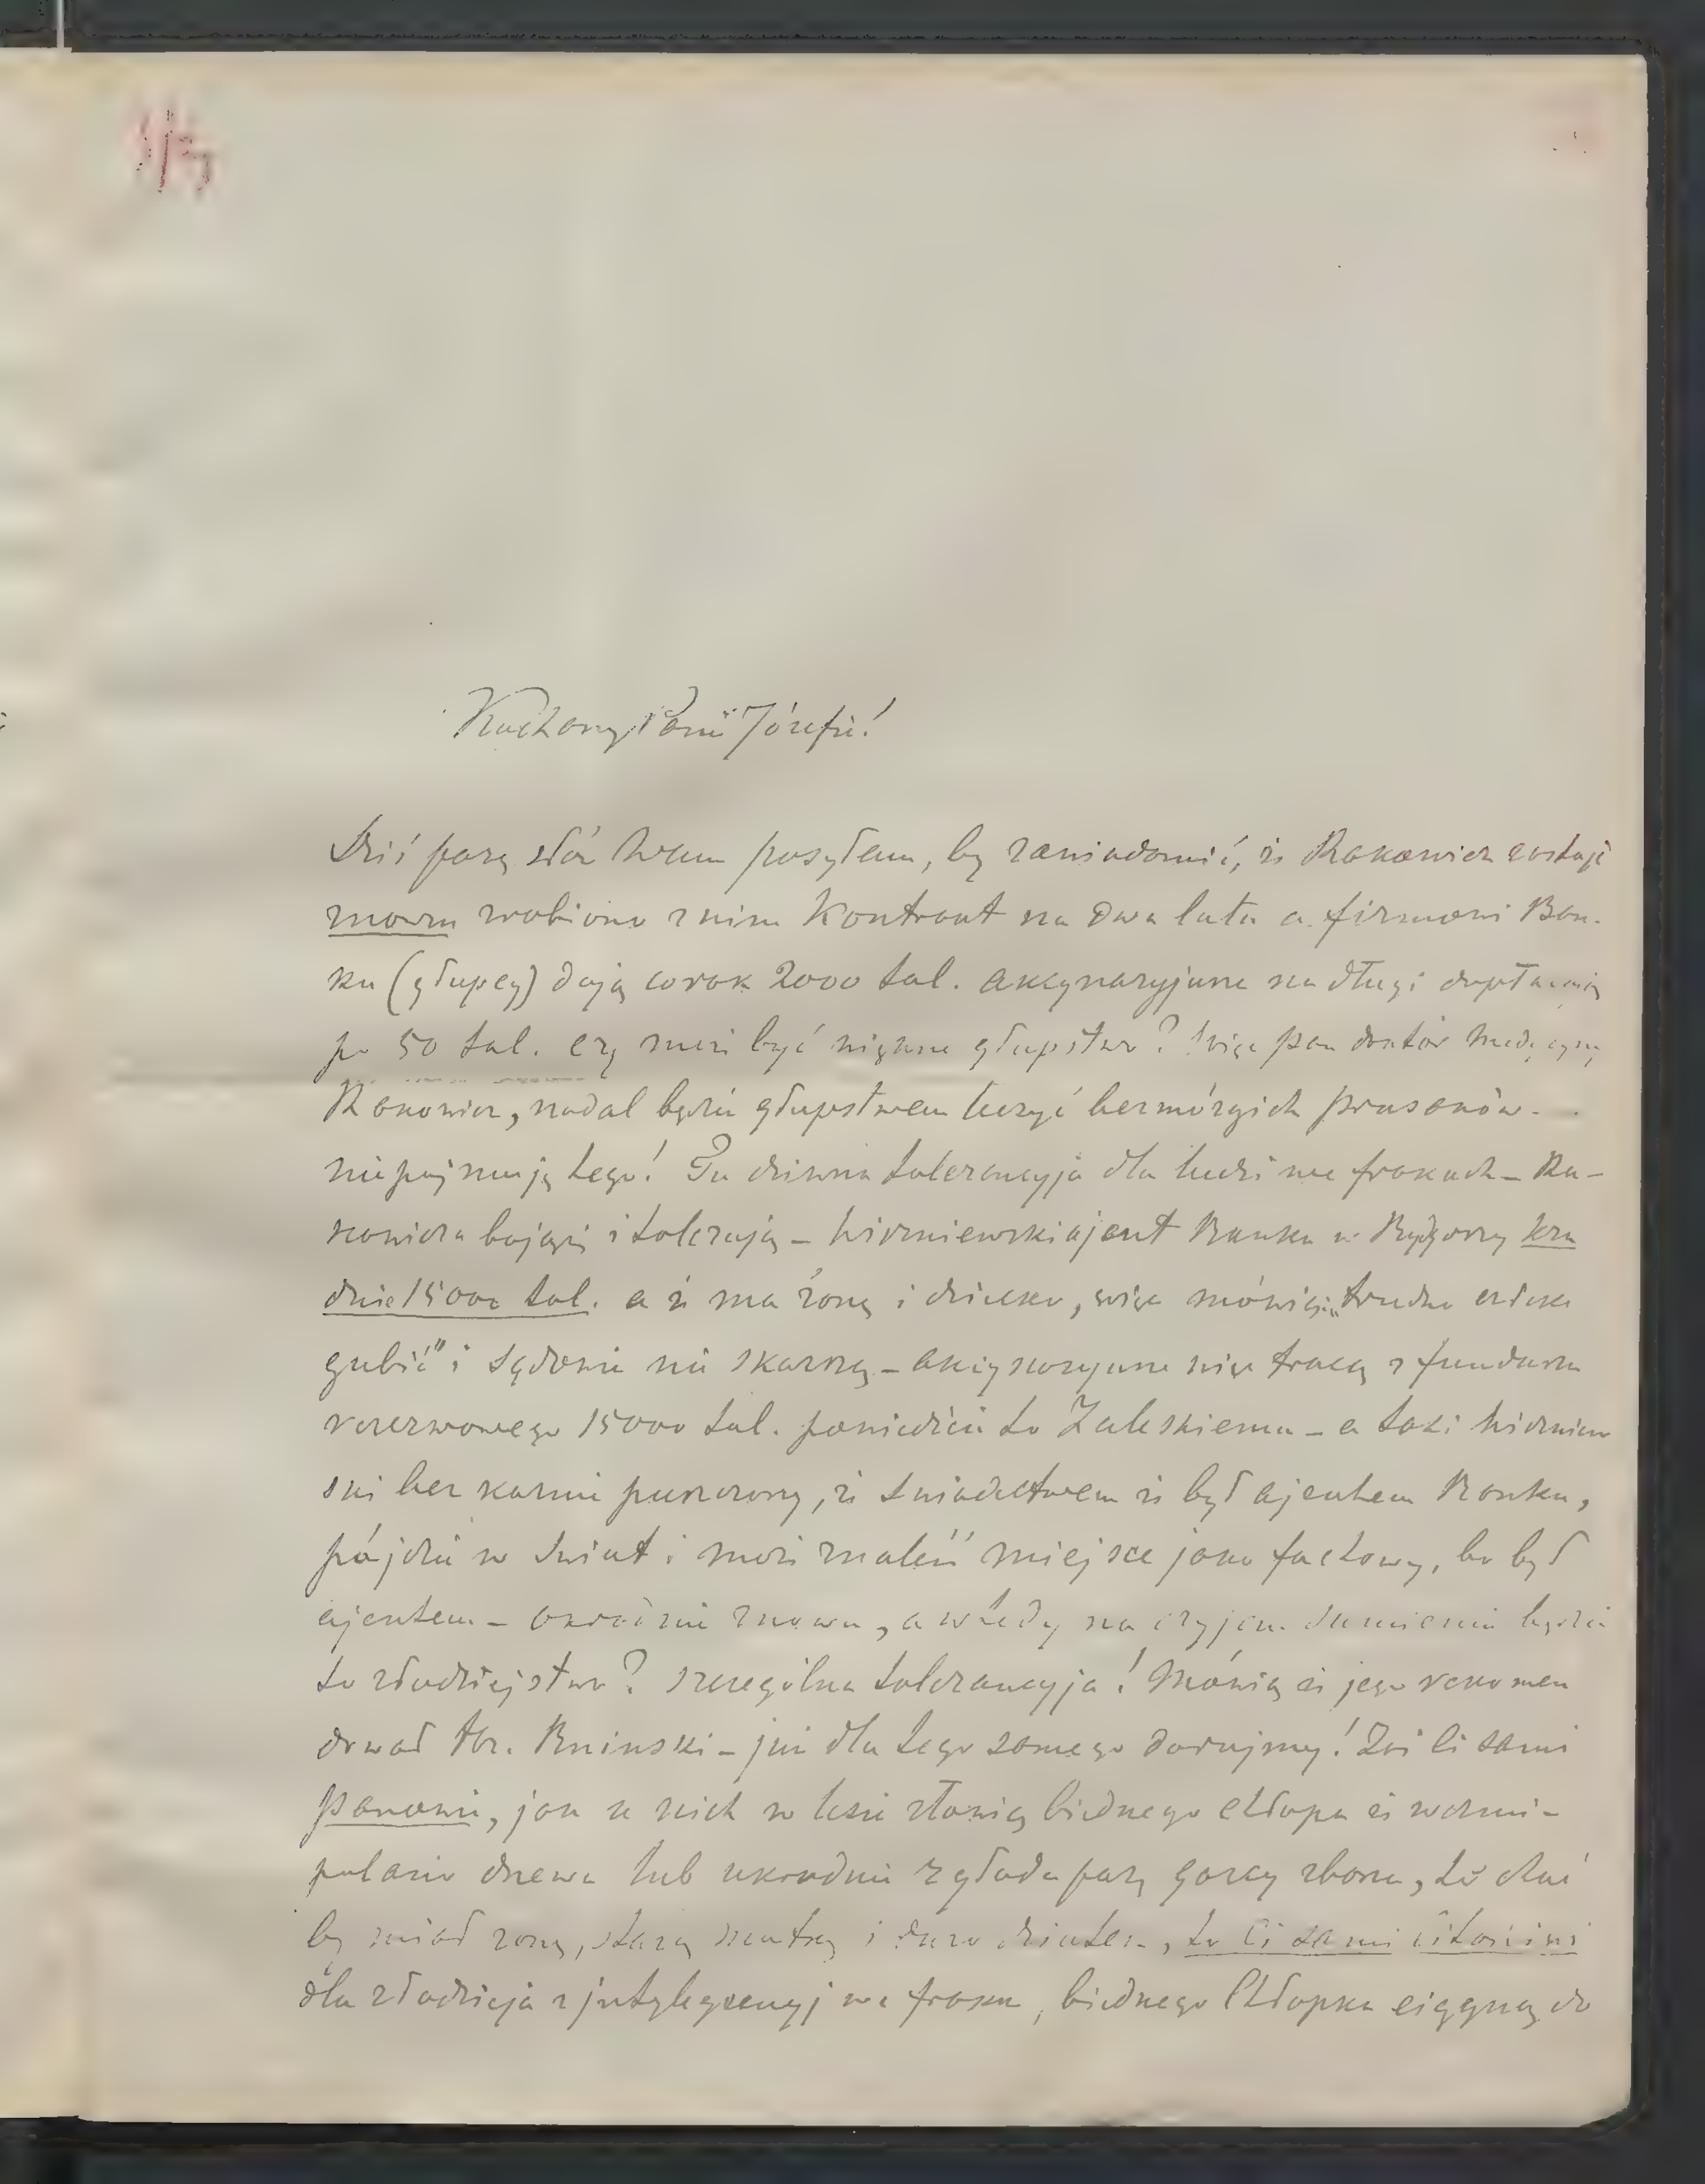 Kochany Panie Józefie!
Dziś parę słów Wam posyłam, by zawiadomić, że Rakowicz zostaje
znowu zrobiono z nim Kontrakt na dwa lata a firmowi Ban-
ku (głupcy) dają co rok 2000 tal. akcynaryjusze na długi dopłacają
po 50 tal. czy może być większe głupstwo? Więc pan doktór medycyny
Rakowicz, nadal będzie głupstwem leczyć bezmózgich prusaków.
nie pojmuję tego! Tu dziwna tolerancyja dla ludzi we frakach – Ra-
kowicza boją się i tolerują – Wiśniewski ajent Banku w Bydgoszczy kra
dnie 15000 tal. a że ma żonę i dziecko, więc mówią: „trudno człeka
gubić" i sądownie nie skarżą – akcynaryjusze więc tracą z funduszu
rezerwowego 15000 tal. powiedzcie to Zaleskiemu – a taki Wiśniew
ski bez karnie puszczony, ze świadectwem że był ajentem Banku,
pójdzie w świat i może znaleść miejsce jako fachowy, bo był
ajentem – okradnie znowu, a wtedy na czyjem sumieniu będzie
to złodziejstwo? szczególna tolerancyja! Mówią że jego rekomen
dował Hr. Bninski – już dla tego samego darujmy! Zaś ci sami
panowie, jak u nich w lesie złowią biednego chłopa że wzemi-
polano drzewa lub ukradnie z głodu parę garcy zboża, to choć
by miał żonę, starą matkę i dużo dziatek, to ci sami litościwi
dla złodzieja z jntelygencyj we fraku, biednego Chłopka ciągną do